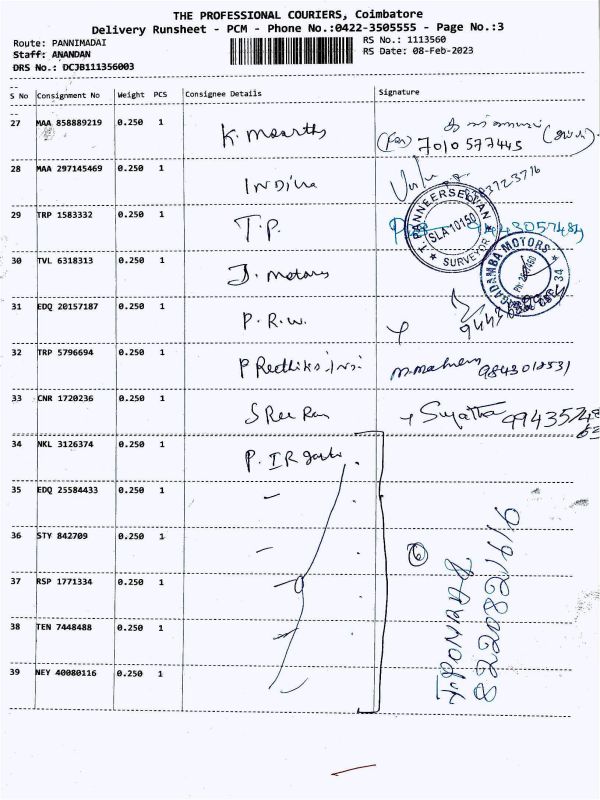 THE PROFESSIONAL COURIERS, Coimbatore
Delivery Runsheet - PCM - Phone No.:0422-3505555 - Page No.:3
Route: PANNIMADAI RS No.: 1113560
Staff: ANANDAN RS Date: 08-Feb-2023
DRS No.: DCJB111356003
S No Consignment No Weight PCS Consignee Details Signature
27 MAA 858889219 0.250 1 K. Moorths
(for) 7010577445
28 MAA 297145469 0.250 1 INDIna
29 TRP 1583332 0.250 1 T.P. 9443057484
T. PANNEERSELVAN
SLA10150
SURVEYOR
30 TVL 6318313 0.250 1 J. motors
JAGADAMBA MOTORS
31 EDQ 20157187 0.250 1 P.R.W.
32 TRP 5796694 0.250 1 9843018531
33 CNR 1720236 0.250 1 SRee Ram Sujatha
34 NKL 3126374 0.250 1
35 EDQ 25584433 0.250 1
36 STY 842709 0.250 1
37 RSP 1771334 0.250 1 6
38 TEN 7448488 0.250 1
39 NEY 40080116 0.250 1
I.PONRAJ
8220821619